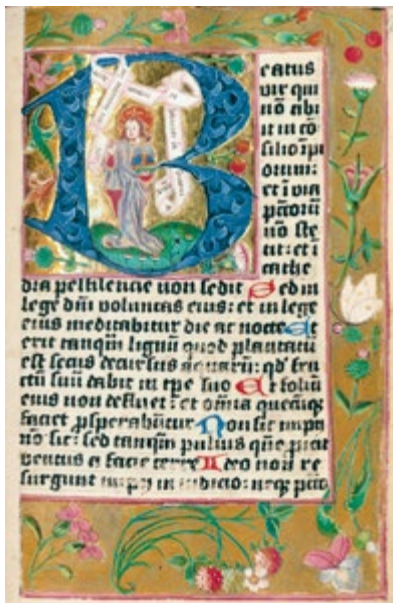 Beatus
vir qui
nō abi
it in cō
silio īpi
orum:
et ī via
pctorū
nō ste
tit: et ī
cathe
dra pestilencie non sedit Sed in
lege dn̄i voluntas eius: et in lege
eius meditabitur die ac nocte Et
erit tanq̄m lignū quod plantatū
est secus decursus aquarū: qd' fru
ctū suū dabit in tpe suo Et foliū
eius non defluet: et om̄ia quecūq;
faciet psperabūtur Non sic impii
nō sic: sed tanq̄m puluis quē proit
ventus a facie terre Ideo non re
surgunt impij in iudicio: neq; pctō